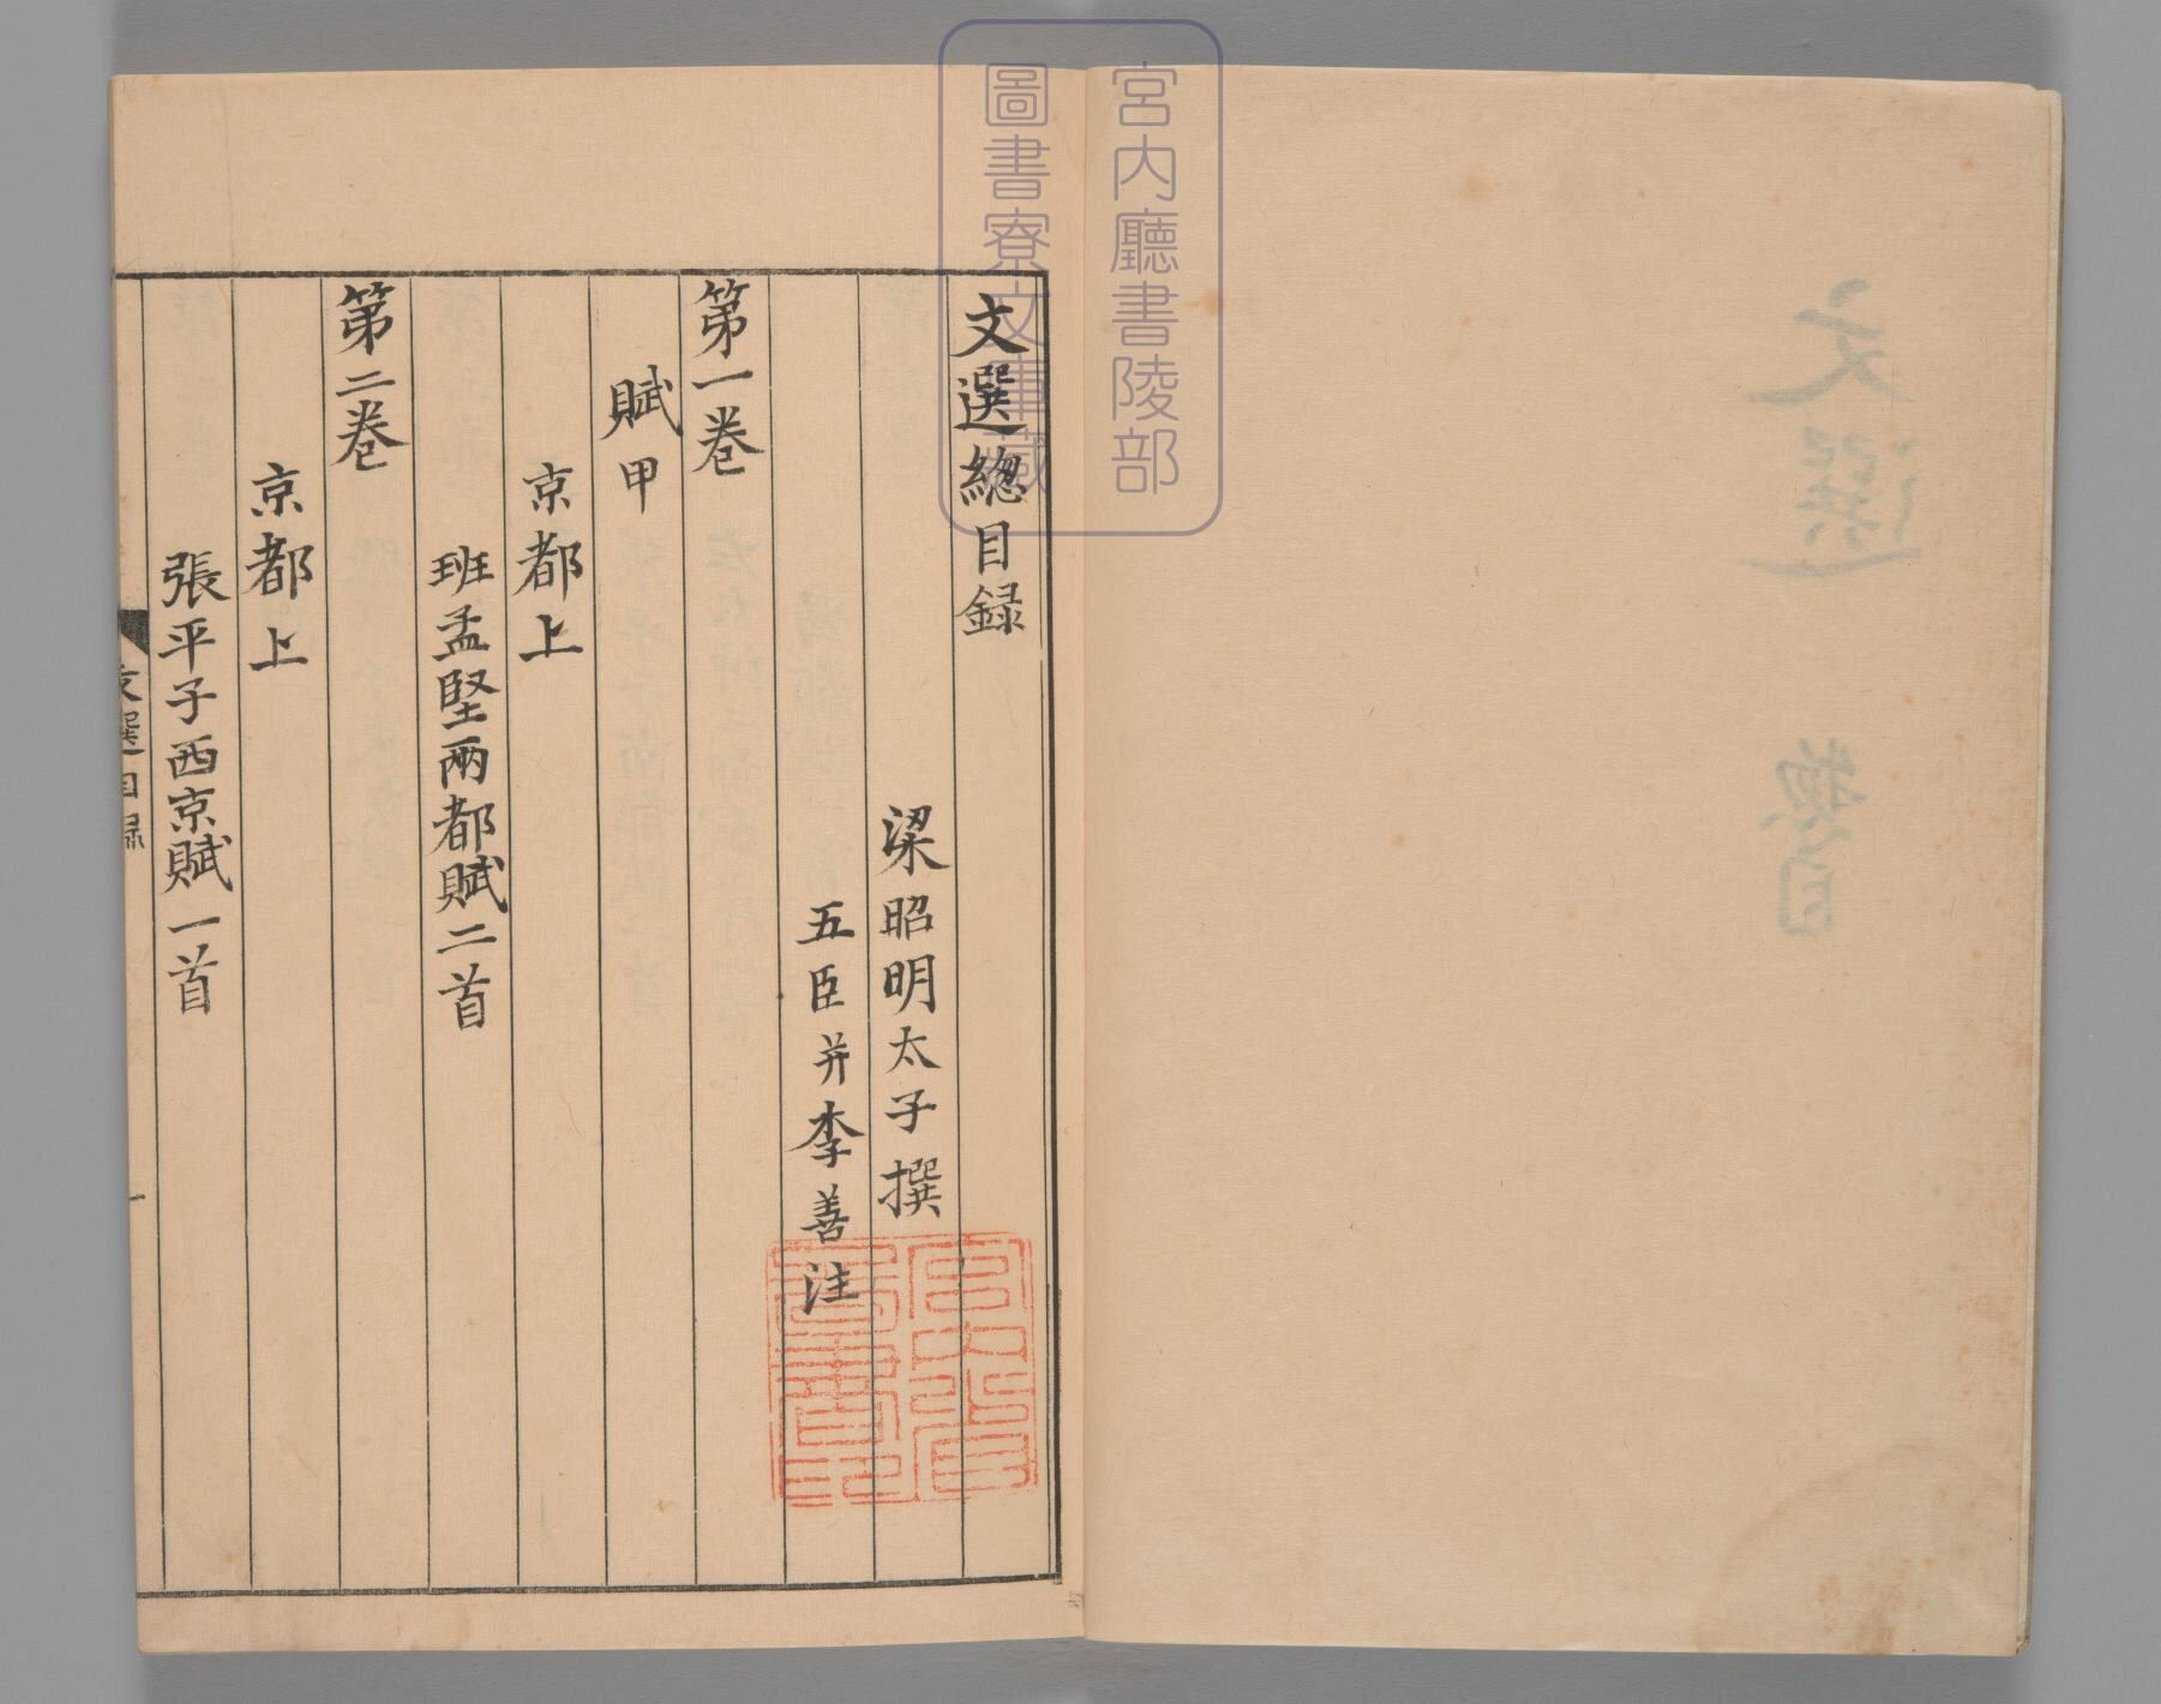 宮内廳書陵部
圖書寮文庫藏
文選
揔目
文選緫目録
梁昭明太子撰
五臣并李善注
第一卷
賦甲
京都上
班孟堅兩都賦二首
第二卷
京都上
張平子西京賦一首
文選目録
一
宮内省
圖書印